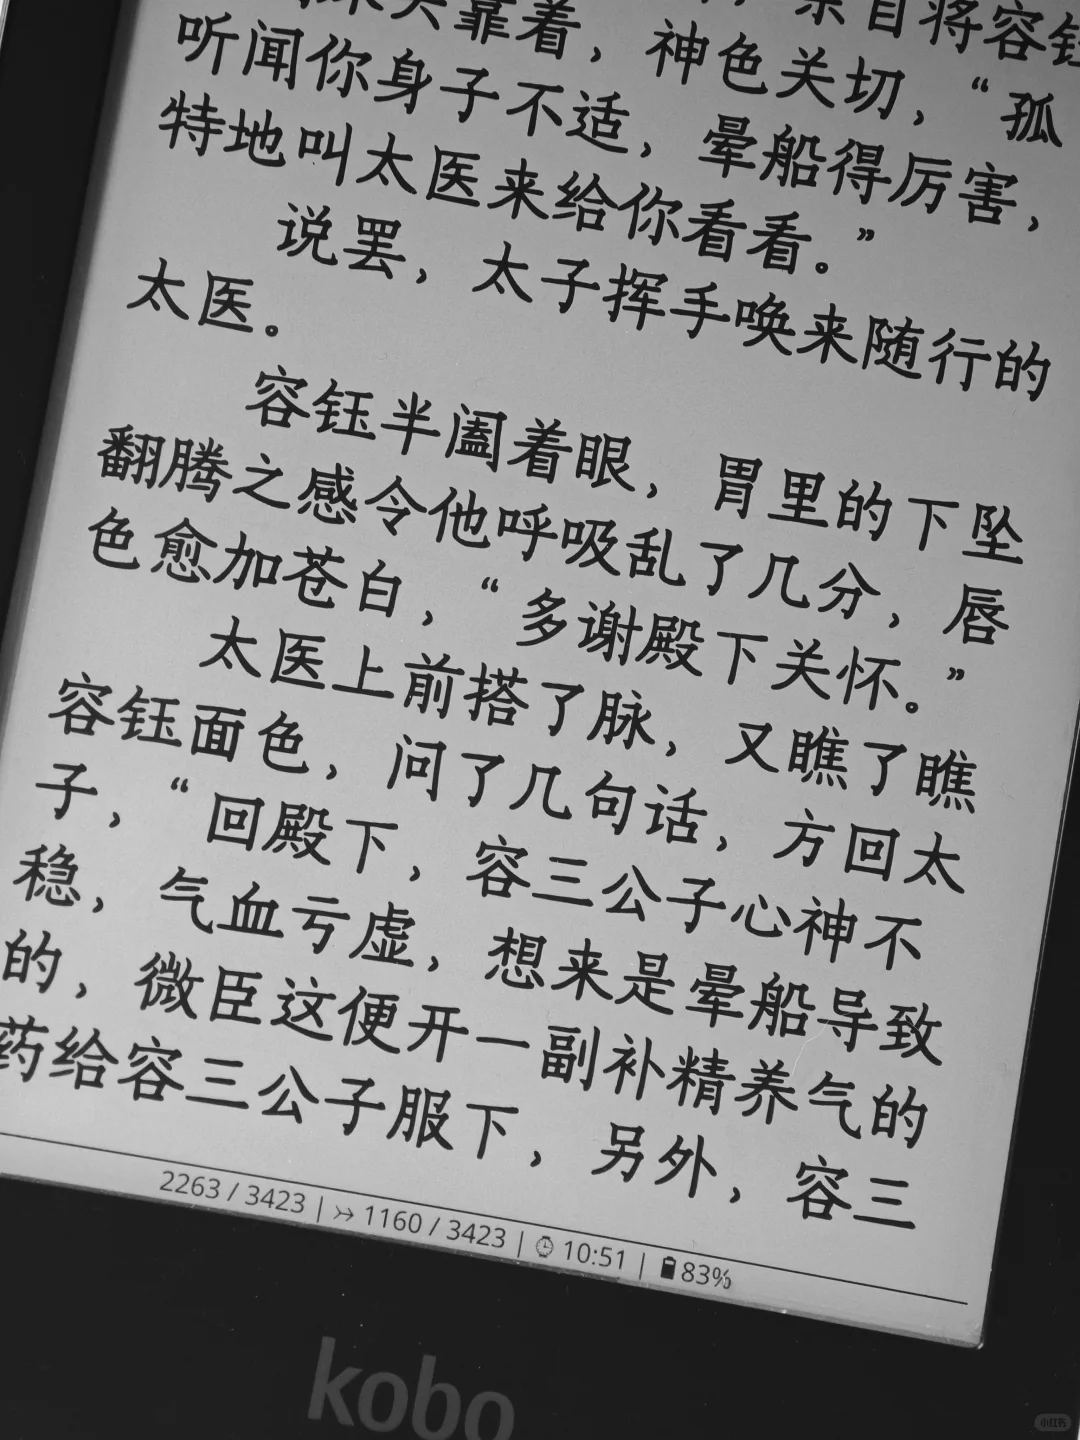 靠着，神色关切，“孤
听闻你身子不适，晕船得厉害，
特地叫太医来给你看看。”
说罢，太子挥手唤来随行的
太医。
容钰半阖着眼，胃里的下坠
翻腾之感令他呼吸乱了几分，唇
色愈加苍白，“多谢殿下关怀。”
太医上前搭了脉，又瞧了瞧
容钰面色，问了几句话，方回太
子，“回殿下，容三公子心神不
稳，气血亏虚，想来是晕船导致
的，微臣这便开一副补精养气的
药给容三公子服下，另外，容三
2263 / 3423 | ↣ 1160 / 3423 | ⌚ 10:51 | 83%
kobo
小红书